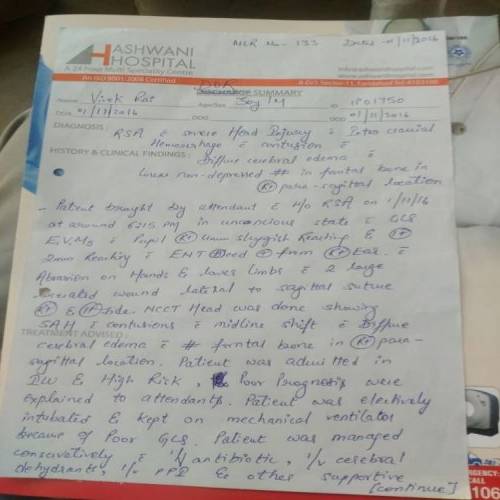 MLR No - 133 Dated - 01/11/2016
ASHWANI
HOSPITAL
A 24 Hour Multi Speciality Centre
An ISO 9001:2008 Certified
SUMMARY
Name Vivek Rai Age/Sex 30y/M ID
DOA 01/11/2016 DOO DOD 01/11/2016
DIAGNOSIS : RSA c̄ severe Head Injury c̄ Intra cranial
Hemorrhage c̄ contusion c̄
HISTORY & CLINICAL FINDINGS : Diffuse cerebral edema c̄
Linear non-depressed # in frontal bone in
(Rt) para-sagittal location
- Patient brought by attendant c̄ H/o RSA on 1/11/16
at around 6:15 PM in unconcious state c̄ GCS
E1V1M3 c̄ Pupil (Rt) sluggish Reacting & (Lt)
2mm Reacting c̄ ENT Bleed + from (Rt) Ear. c̄
Abrasion on Hands & lower limbs c̄ 2 large
lacerated wound lateral to sagittal suture
(Rt) & (Lt) side. NCCT Head was done showing
SAH c̄ contusions c̄ midline shift c̄ Diffuse
cerebral edema c̄ # frontal bone in (Rt) para-
TREATMENT ADVISED :
sagittal location. Patient was admitted in
ICU & High Risk, Poor Prognosis were
explained to attendants. Patient was electively
intubated & kept on mechanical ventilator
because of Poor GCS. Patient was managed
conservatively c̄ I/V antibiotic, I/V cerebral
dehydrants, I/V PPI & other supportive
[continue]